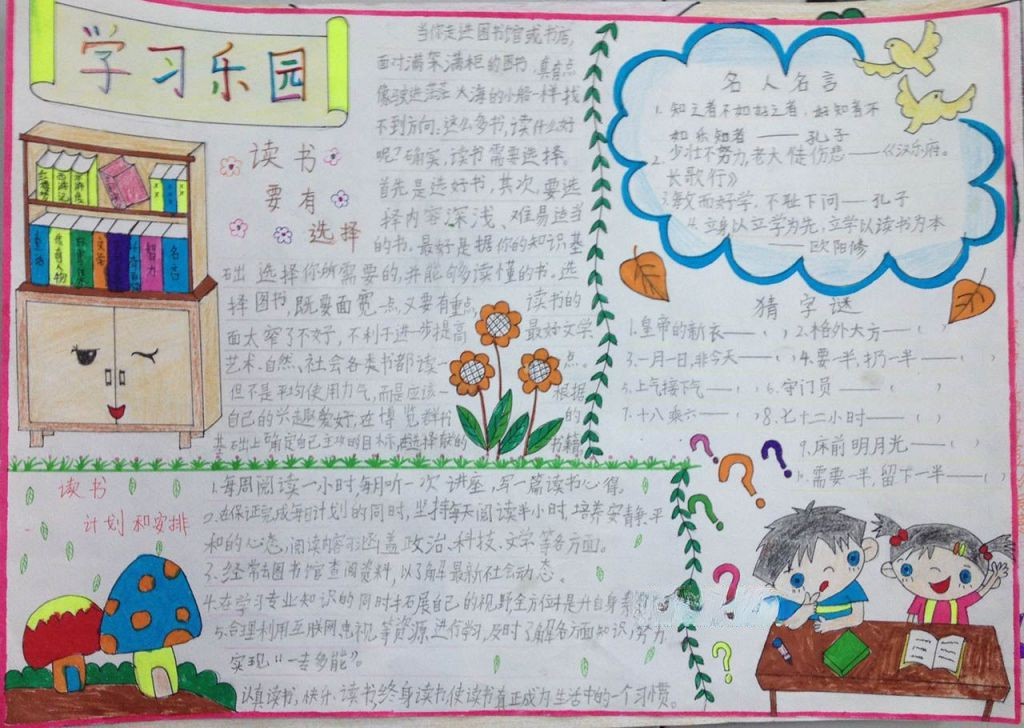 学习乐园
读书
要有
选择
当你走进图书馆或书店,
面对满架满柜的图书,真有点
像驶进茫茫大海的小船一样找
不到方向:这么多书,读什么好
呢?确实,读书需要选择。
首先是选好书,其次,要选
择内容深浅、难易适当
的书。最好是据你的知识基
础 选择你所需要的,并能够读懂的书。选
择图书,既要面宽一点,又要有重点, 读书的
面太窄了不好,不利于进一步提高 最好文学
艺术.自然、社会各类书都读一 点。
但不是平均使用力气,而是应该 根据
自己的兴趣爱好,在博览群书 的
基础上确定自己主攻的目标, 选择 的 书籍
名人名言
1. 知之者不如好之者,好知者不
如乐知者 —— 孔子
2. 少壮不努力,老大徒伤悲——《汉乐府。
长歌行》
3.敏而好学,不耻下问—— 孔子
4.立身以立学为先,立学以读书为本
欧阳修
猜字谜
1.皇帝的新衣——( ) 2.格外大方——( )
3.一月一日,非今天——( ) 4.要一半,扔一半——( )
5.上气接下气——( ) 6.守门员——( )
7.十八乘六——( ) 8.七十二小时——( )
9.床前明月光——( )
10.需要一半,留下一半——( )
红楼梦
西游记
水浒传
名人
智力
名言
读书
计划和安排
1.每周阅读一小时,每月听一次讲座,写一篇读书心得。
2.在保证完成每日计划的同时,坚持每天阅读半小时,培养安静.平
和的心态,阅读内容涵盖政治、科技、文学等各方面。
3.经常去图书馆查阅资料,以了解最新社会动态.
4.在学习专业知识的同时拓展自己的视野全方位提升自身素
5.合理利用互联网电视等资源进行学习,及时了解各方面知识,努力
实现"一专多能"。
认真读书,快乐读书,终身读书,使读书真正成为生活中的一个习惯。